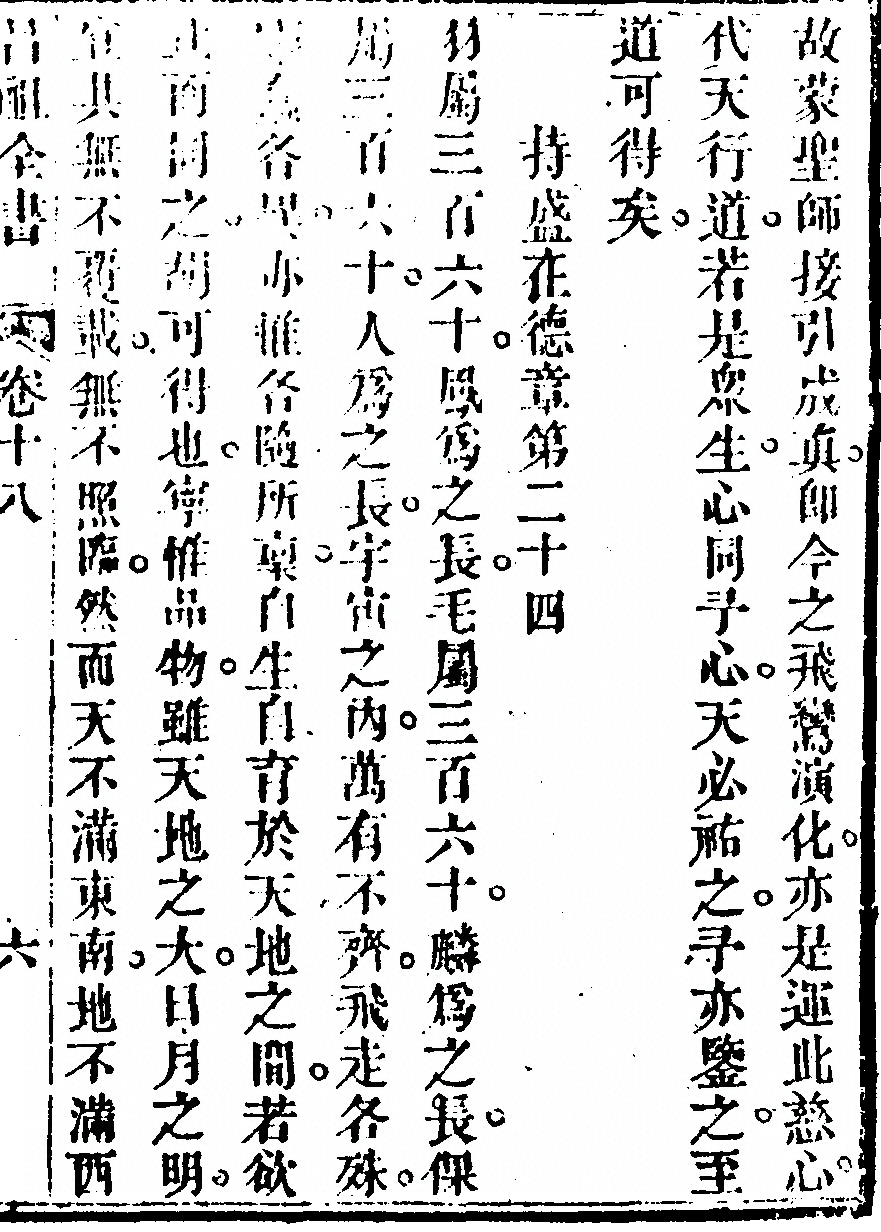 故蒙聖師接引成真卽今之飛鸞演化亦是運此慈心
代天行道若是衆生心同予心天必祐之予亦鑒之至
道可得矣
持盛在德章第二十四
羽屬三百六十鳳爲之長毛屬三百六十麟爲之長倮
屬三百六十人爲之長宇宙之內萬有不齊飛走各殊
各異亦惟各隨所稟自生自育於天地之間若欲
而同之胡可得也寧惟品物雖天地之大日月之明
宜其無不覆載無不照臨然而天不滿東南地不滿西
呂祖全書 卷十八 六